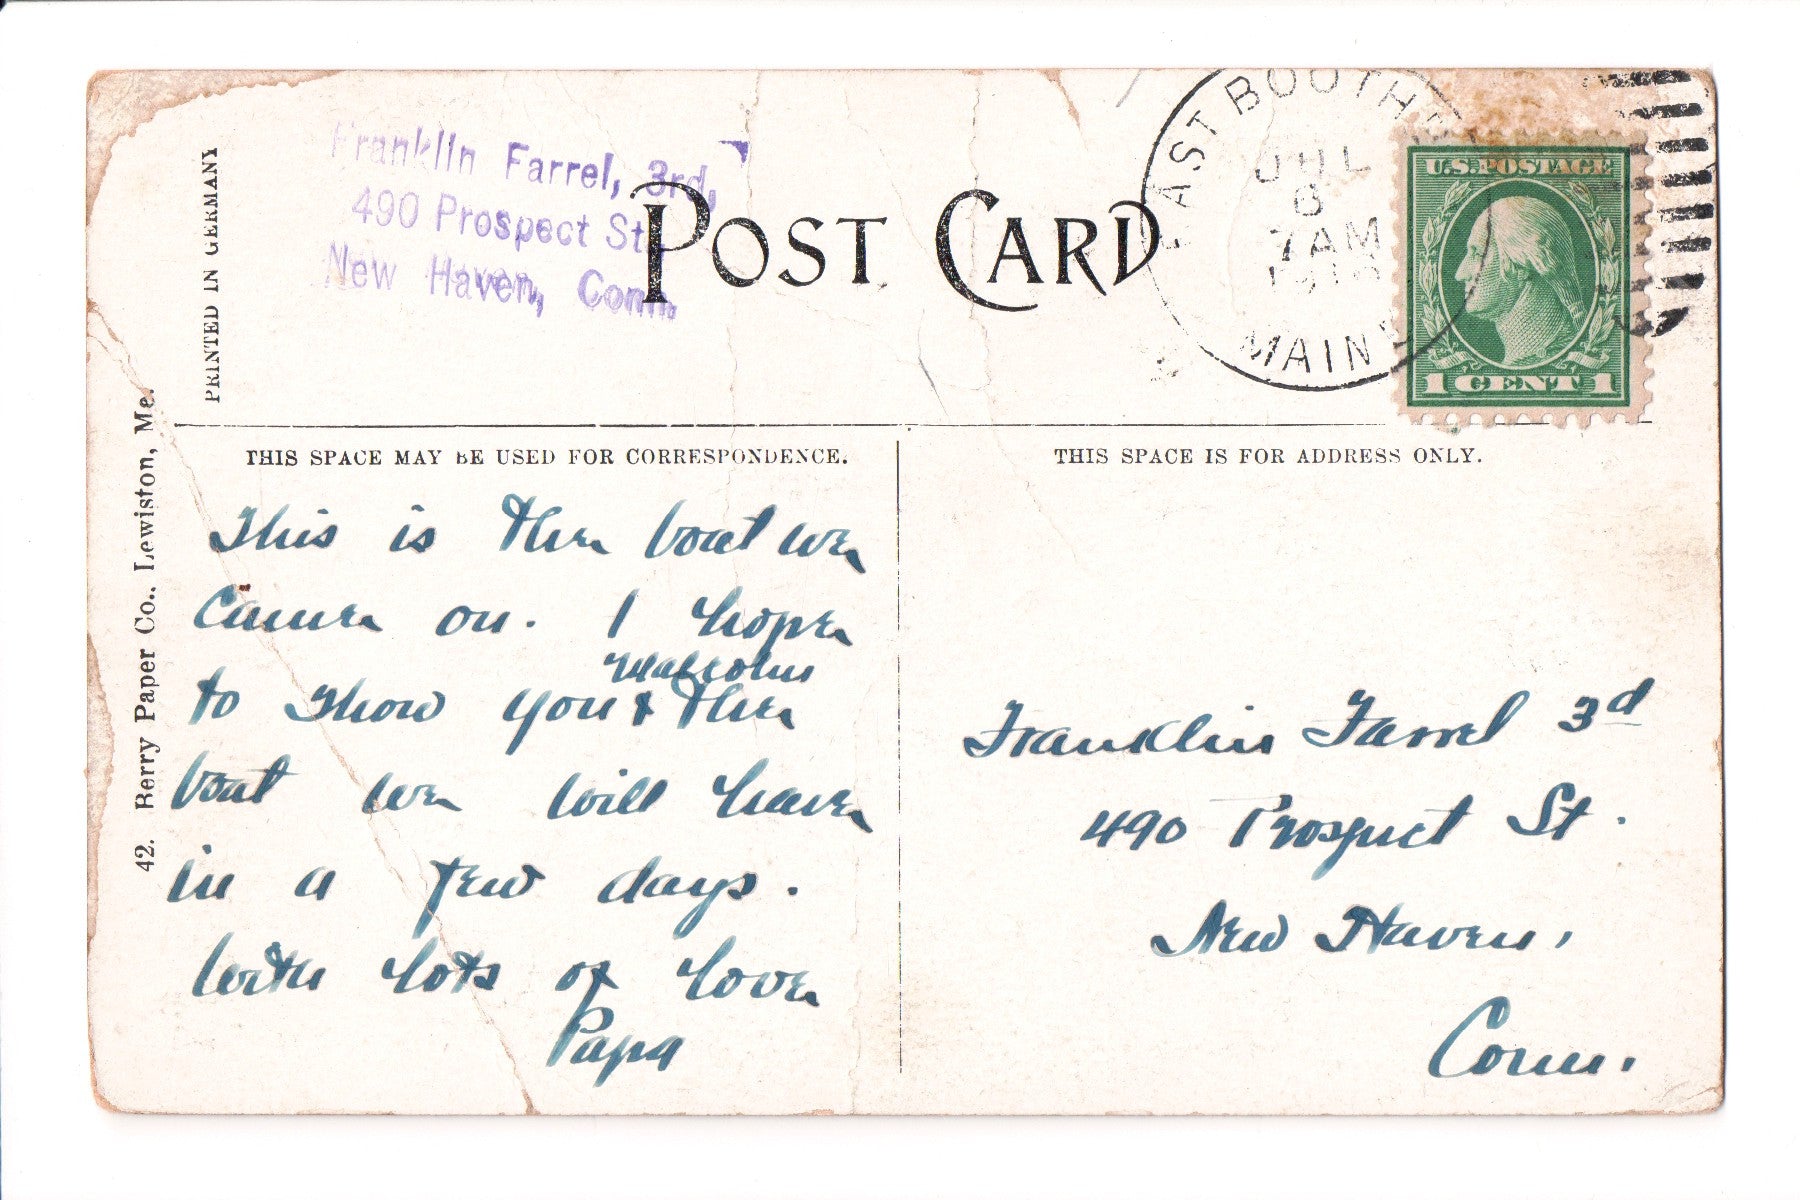 Franklin Farrel, 3rd,
490 Prospect St.
New Haven, Conn.
POST CARD
EAST BOOTHB
JUL
6
7 AM
MAINE
U.S. POSTAGE
1 CENT 1
PRINTED IN GERMANY
42. Berry Paper Co., Lewiston, Me.
THIS SPACE MAY BE USED FOR CORRESPONDENCE.
This is the boat we
came on. I hope
Malcolm
to show you & the
boat we will have
in a few days.
with lots of love
Papa
THIS SPACE IS FOR ADDRESS ONLY.
Franklin Farrel 3d
490 Prospect St.
New Haven,
Conn.